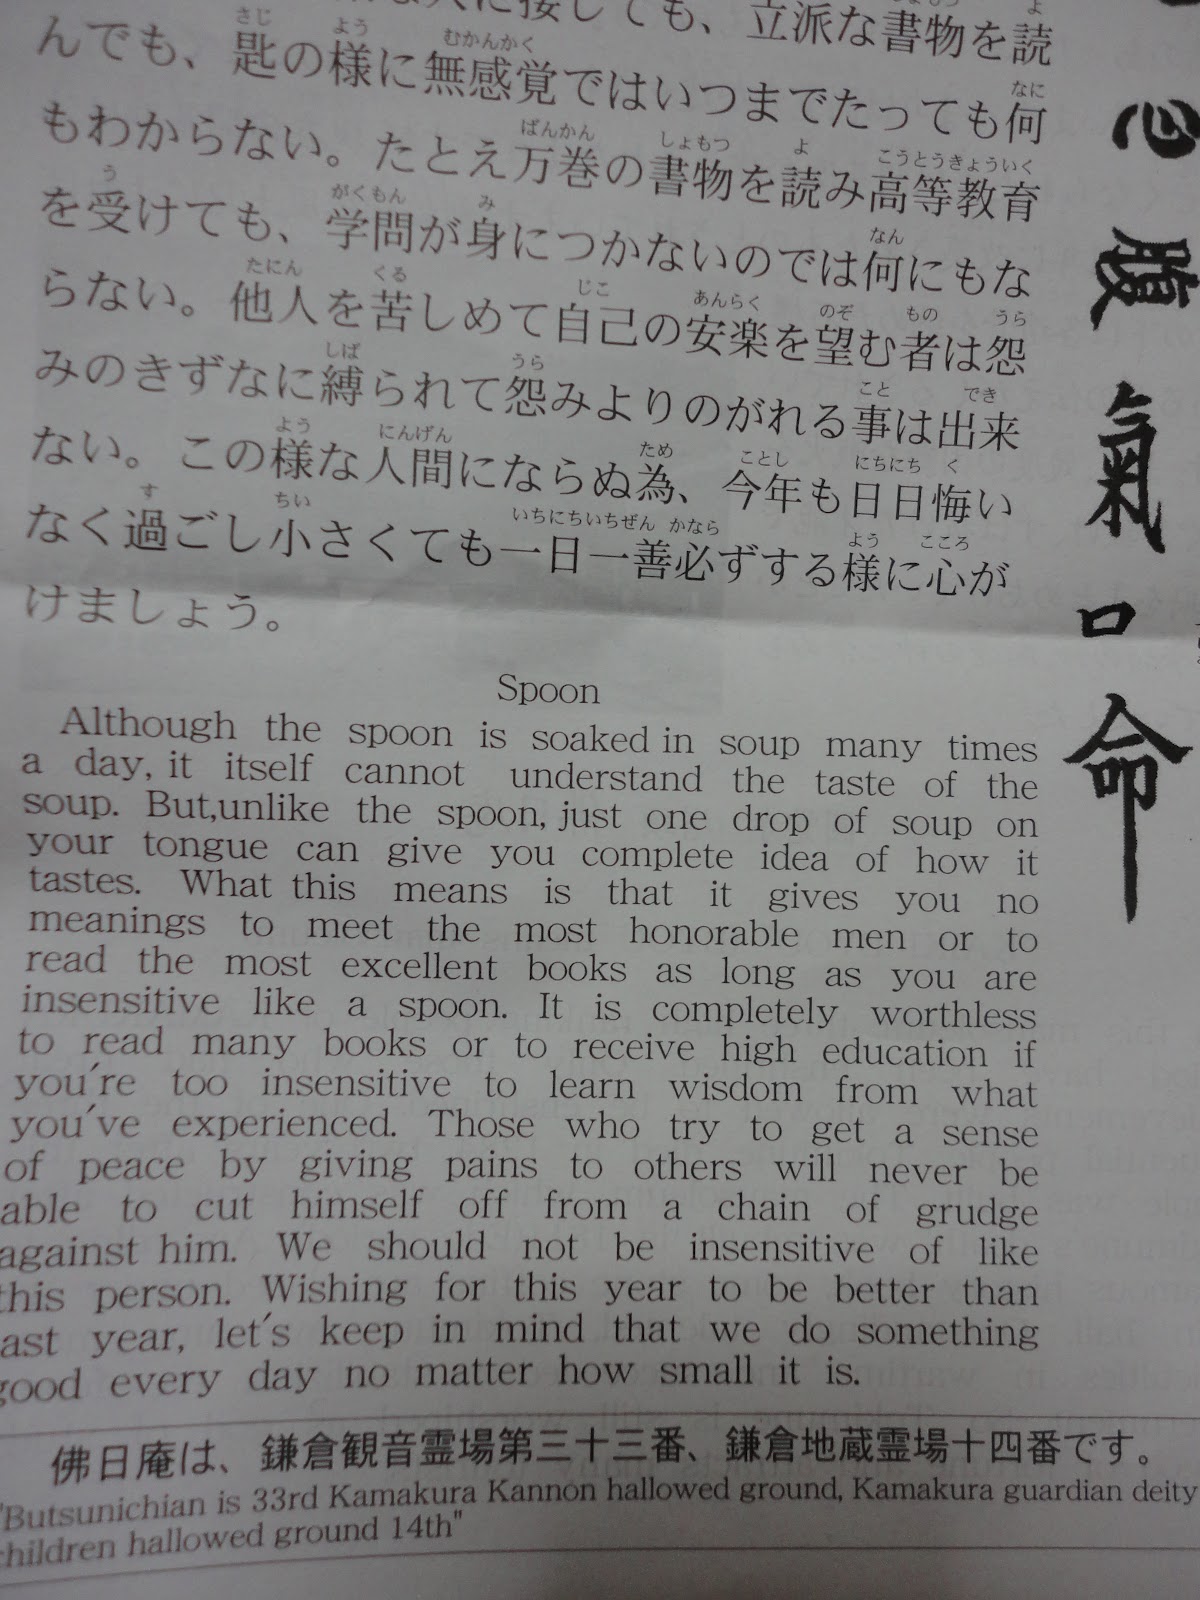 な人に接しても、立派な書物を読
んでも、匙の様に無感覚ではいつまでたっても何
もわからない。たとえ万巻の書物を読み高等教育
を受けても、学問が身につかないのでは何にもな
らない。他人を苦しめて自己の安楽を望む者は怨
みのきずなに縛られて怨みよりのがれる事は出来
ない。この様な人間にならぬ為、今年も日日悔い
なく過ごし小さくても一日一善必ずする様に心が
けましょう。
腹
氣
口
命
Spoon
Although the spoon is soaked in soup many times
a day, it itself cannot understand the taste of the
soup. But,unlike the spoon, just one drop of soup on
your tongue can give you complete idea of how it
tastes. What this means is that it gives you no
meanings to meet the most honorable men or to
read the most excellent books as long as you are
insensitive like a spoon. It is completely worthless
to read many books or to receive high education if
you're too insensitive to learn wisdom from what
you've experienced. Those who try to get a sense
of peace by giving pains to others will never be
able to cut himself off from a chain of grudge
against him. We should not be insensitive of like
this person. Wishing for this year to be better than
last year, let's keep in mind that we do something
good every day no matter how small it is.
佛日庵は、鎌倉観音霊場第三十三番、鎌倉地蔵霊場十四番です。
"Butsunichian is 33rd Kamakura Kannon hallowed ground, Kamakura guardian deity
children hallowed ground 14th"